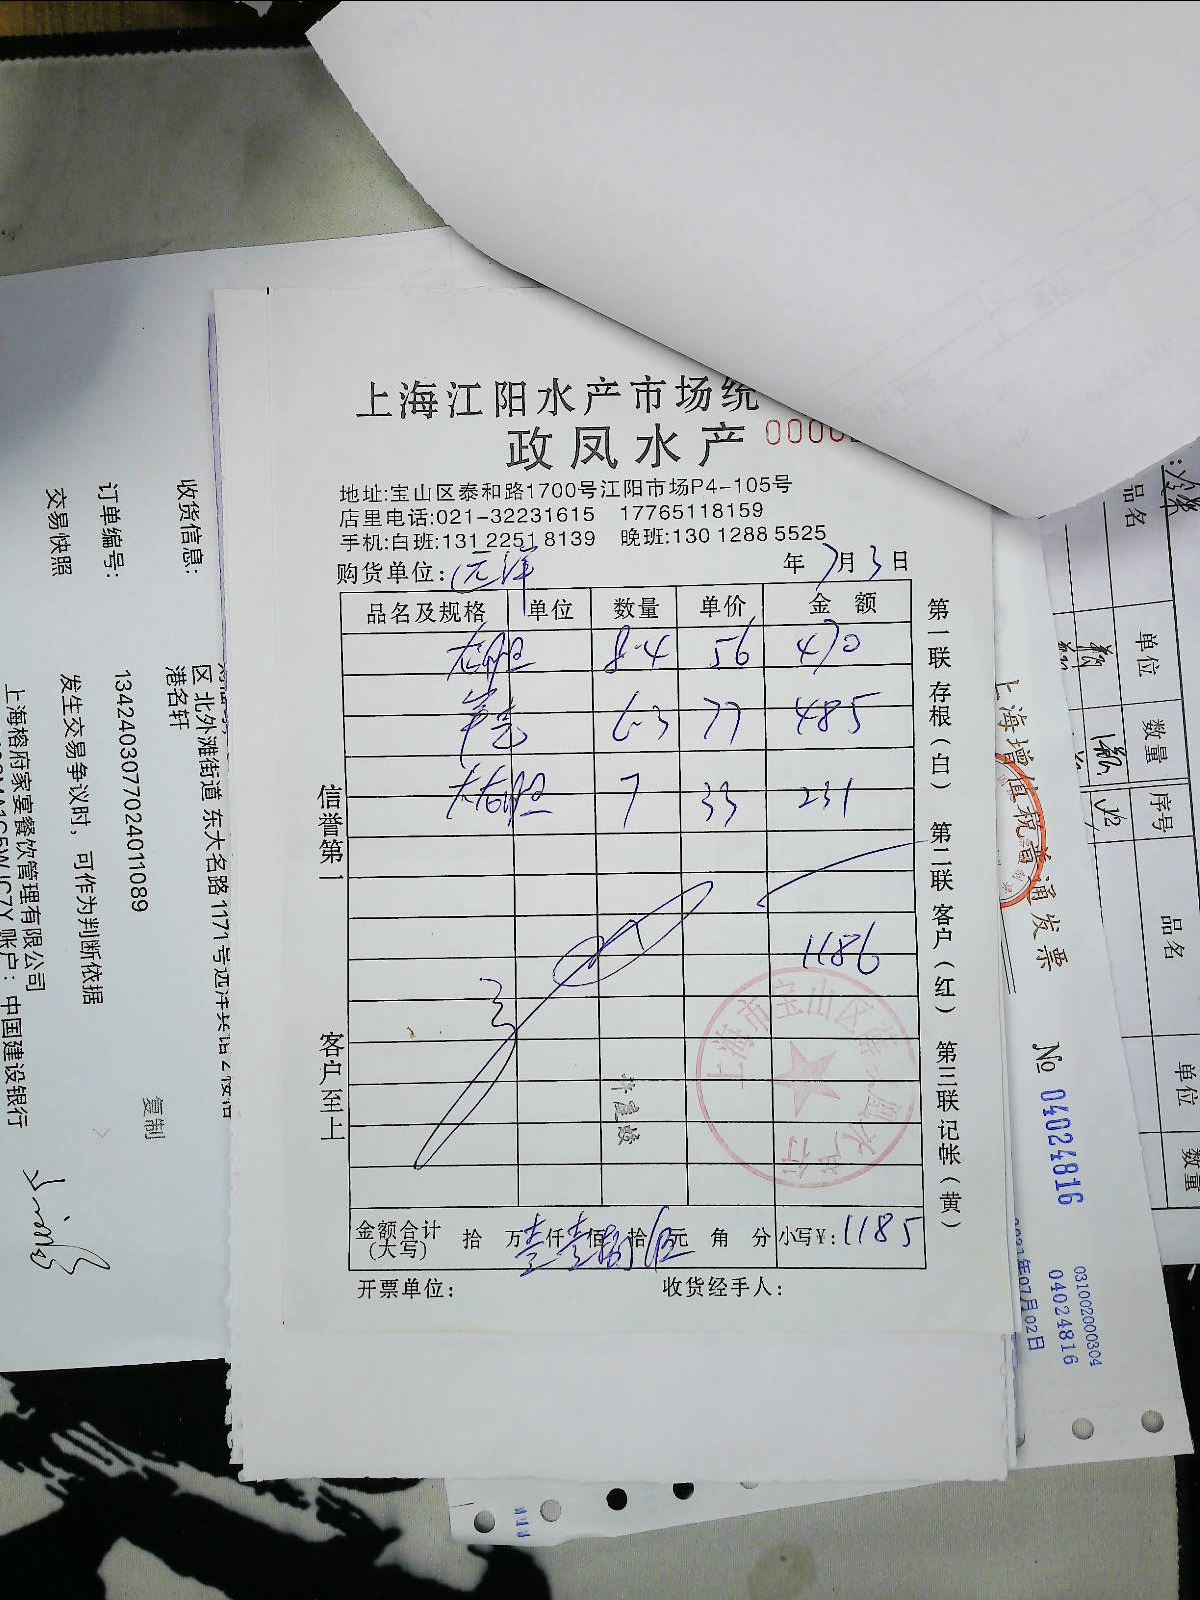 上海江阳水产市场统
政凤水产
地址:宝山区泰和路1700号江阳市场P4-105号
店里电话:021-32231615 17765118159
手机:白班:131 2251 8139 晚班:130 1288 5525
购货单位:远洋 年7月3日
品名及规格 单位 数量 单价 金额
8.4 56 470
6.3 77 485
7 33 231
1186
金额合计(大写) 拾 万壹仟壹佰捌拾伍元 角 分 小写¥:1185
开票单位: 收货经手人:
信誉第一
客户至上
第一联存根(白) 第二联客户(红) 第三联记帐(黄)
收货信息:
区 北外滩街道 东大名路1171号远洋宾馆2楼
港名轩
复制
订单编号:
1342403077024011089
交易快照
发生交易争议时，可作为判断依据
上海榕府家宴餐饮管理有限公司
账户：中国建设银行
上海增值税普通发票
№ 04024816
031002000304
04024816
2021年07月02日
品名
单位
数量
序号
品名
单位
数量